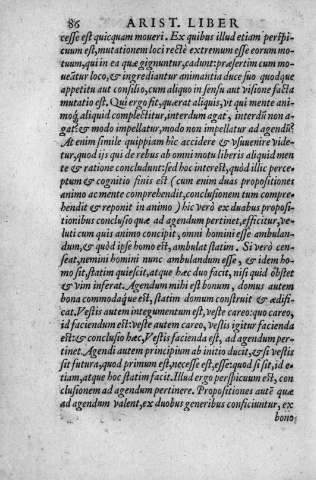 86 ARIST. LIBER
cesse est quicquam moueri. Ex quibus illud etiam perspi-
cuum est, mutationem loci rectè extremum esse eorum mo-
tuum, qui in ea quæ gignuntur, cadunt: præsertim cum mo-
ueātur loco, & ingrediantur animantia duce suo quodque
appetitu aut consilio, cum aliquo in sensu aut visione facta
mutatio est. Qui ergo fit, quærat aliquis, vt qui mente ani-
moq́; aliquid complectitur, interdum agat, interdū non a-
gat: & modo impellatur, modo non impellatur ad agendū?
At enim simile quippiam hic accidere & vsuuenire vide-
tur, quod ijs qui de rebus ab omni motu liberis aliquid men
te & ratione concludunt: sed hoc interest, quòd illic perce-
ptum & cognitio finis est (cum enim duas propositiones
animo ac mente comprehendit, conclusionem tum compre-
hendit & reponit in animo) hic verò ex duabus proposi-
tionibus conclusio quæ ad agendum pertinet, efficitur, ve-
luti cum quis animo concipit, omni homini esse ambulan-
dum, & quòd ipse homo est, ambulat statim. Si verò cen-
seat, nemini homini nunc ambulandum esse, & idem ho-
mo sit, statim quiescit, atque hæc duo facit, nisi quid obstet
& vim inferat. Agendum mihi est bonum, domus autem
bona commodaq́ue est, statim domum construit & ædifi-
cat. Vestis autem integumentum est, veste careo: quo careo,
id faciendum est: veste autem careo, vestis igitur facienda
est: & conclusio hæc, Vestis facienda est, ad agendum per-
tinet. Agendi autem principium ab initio ducit, & si vestis
sit futura, quod primum est, necesse est, esse: quod si sit, id e-
tiam, atque hoc statim facit. Illud ergo perspicuum est, con
clusionem ad agendum pertinere. Propositiones autē quæ
ad agendum valent, ex duobus generibus conficiuntur, ex
bono